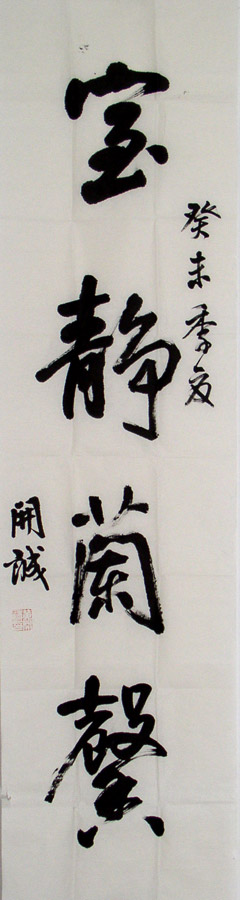 癸未季夏
室静蘭馨
開誠